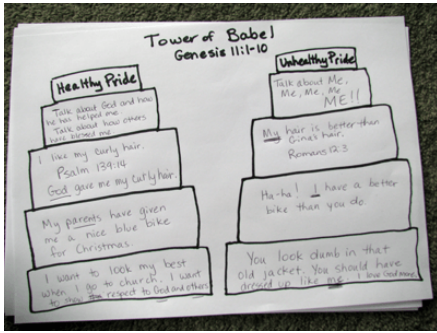 Tower of Babel
Genesis 11:1-10
Healthy Pride
Talk about God and how
he has helped me.
Talk about how others
have blessed me.
I like my curly hair.
Psalm 139:14
God gave me my curly hair.
My parents have given
me a nice blue bike
for Christmas.
I want to look my best
when I go to church. I want
to show respect to God and others.
Unhealthy Pride
Talk about Me,
Me, Me, Me,
ME!!
My hair is better than
Gina's hair.
Romans 12:3
Ha-ha! I have a better
bike than you do.
You look dumb in that
old jacket. You should have
dressed up like me. I love God more.